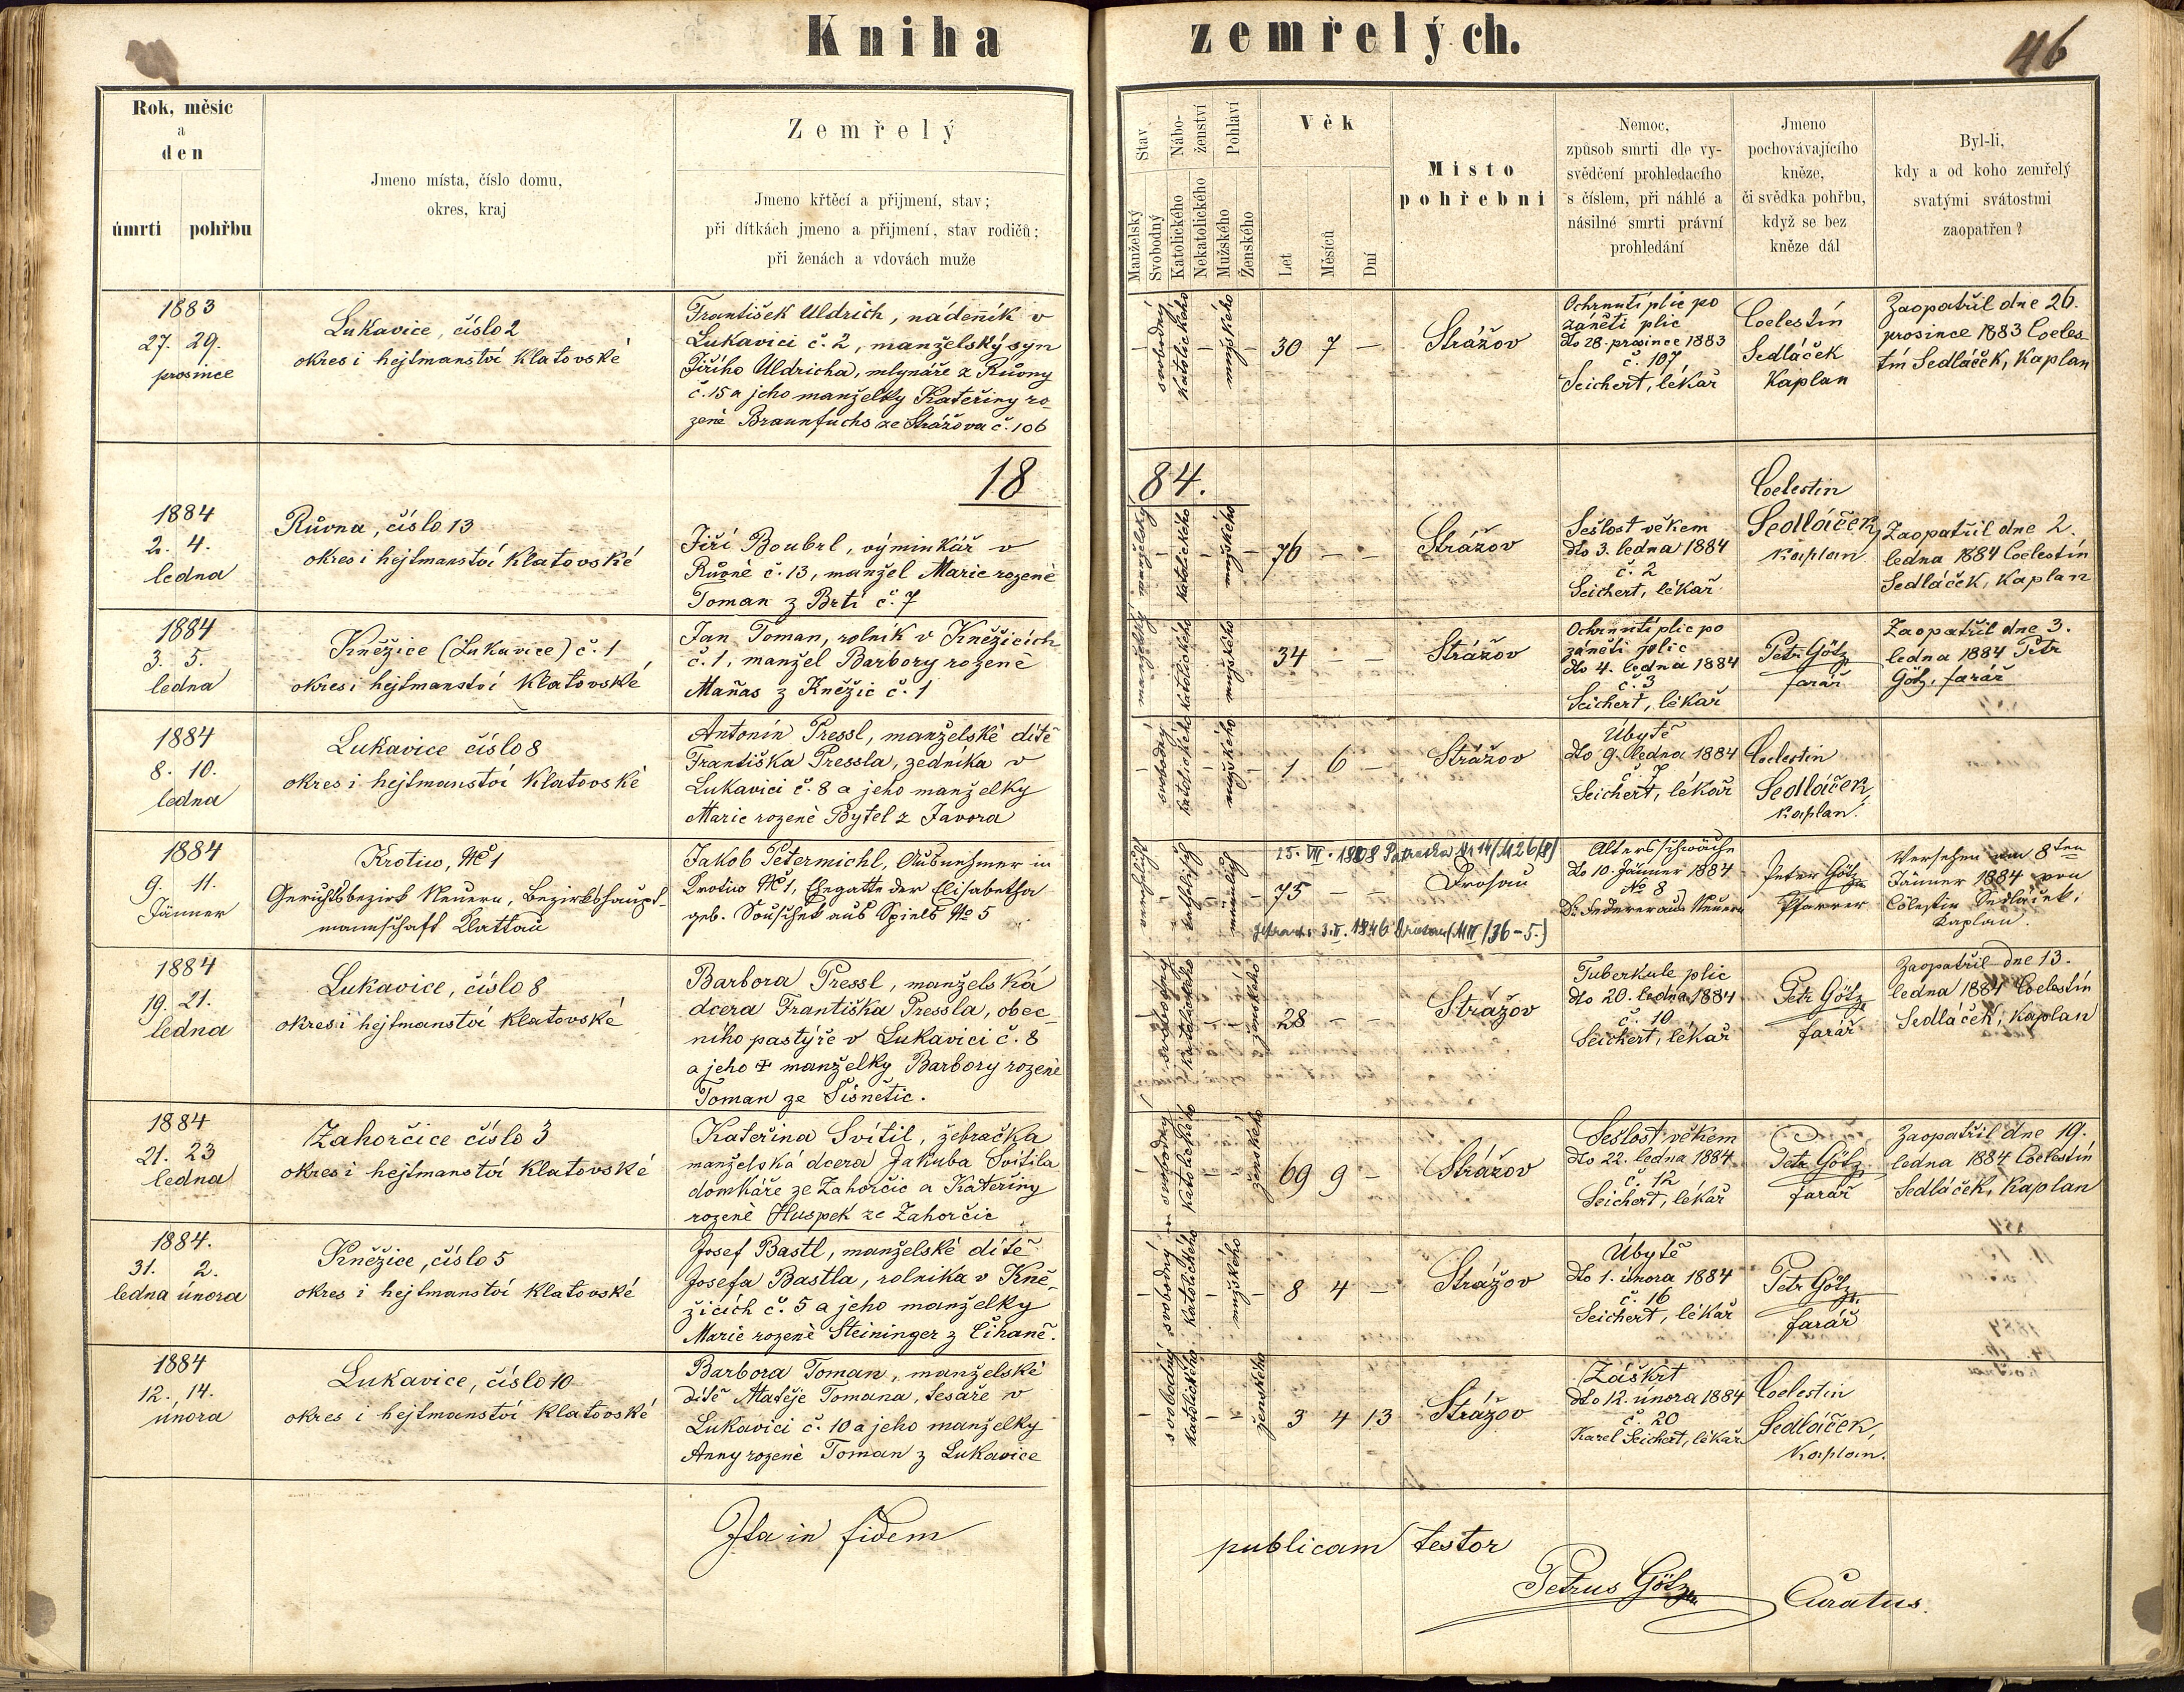 Kniha zemřelých.
46
Rok, měsíc
a
den
úmrtí pohřbu
Jmeno místa, číslo domu,
okres, kraj
Zemřelý
Jmeno křtěcí a přijmení, stav;
při dítkách jmeno a přijmení, stav rodičů;
při ženách a vdovách muže
Stav
Manželský
Svobodný
Nábo-
ženství
Katolického
Nekatolického
Pohlaví
Mužského
Ženského
Věk
Let
Měsíců
Dní
Místo
pohřební
Nemoc,
způsob smrti dle vy-
svědčení prohledacího
s číslem, při náhlé a
násilné smrti právní
prohledání
Jmeno
pochovávajícího
kněze,
či svědka pohřbu,
když se bez
kněze dál
Byl-li,
kdy a od koho zemřelý
svatými svátostmi
zaopatřen?
1883
27. 29.
prosince
Lukavice, číslo 2
okres i hejtmanství Klatovské
František Uldrich, nádenník v
Lukavici č. 2, manželský syn
Jiřího Uldricha, mlynáře z Růvny
č. 15 a jeho manželky Kateřiny ro-
zené Braunfuchs ze Strážova č. 106
svobodný
katolického
mužského
30 7 —
Strážov
Ochrnutí plic po
zánětí plic
dto 28. prosince 1883
č. 107
Seichert, lékař
Coelestín
Sedláček
Kaplan
Zaopatřil dne 26.
prosince 1883 Coeles-
tín Sedláček, Kaplan
1884.
1884
2. 4.
ledna
Růvna, číslo 13
okres i hejtmanství Klatovské
Jiří Boubrl, výminkář v
Růvně č. 13, manžel Marie rozené
Toman z Brtí č. 7
katolického
mužského
76 — —
Strážov
Sešlost věkem
dto 3. ledna 1884
č. 2
Seichert, lékař
Coelestin
Sedláček,
kaplan
Zaopatřil dne 2.
ledna 1884 Coelestín
Sedláček, Kaplan
1884
3. 5.
ledna
Kněžice (Lukavice) č. 1
okres i hejtmanství Klatovské
Jan Toman, rolník v Kněžicích
č. 1, manžel Barbory rozené
Maňas z Kněžic č. 1
katolického
mužského
34 — —
Strážov
Ochrnutí plic po
zánětí plic
dto 4. ledna 1884
č. 3
Seichert, lékař
Petr Götz
farář
Zaopatřil dne 3.
ledna 1884 Petr
Götz, farář
1884
8. 10.
ledna
Lukavice číslo 8
okres i hejtmanství Klatovské
Antonín Pressl, manželské dítě
Františka Pressla, zedníka v
Lukavici č. 8 a jeho manželky
Marie rozené Bytel z Javora
svobodný
katolického
mužského
1 6 —
Strážov
Úbytě
dto 9. ledna 1884
č. 7
Seichert, lékař
Coelestin
Sedláček,
kaplan.
1884
9. 11.
Jänner
Krotiw, No 1
Gerichtsbezirk Neuern, Bezirkshaupt-
mannschaft Klattau
Jakob Petermichl, Ausnehmer in
Krotiw No 1, Ehegatte der Elisabetha
geb. Souschek aus Spiels No 5
katholisch
männlich
75 — —
Drosau
Altersschwäche
dto 10. Jänner 1884
No 8
Dr. Federer aus Neuern
Peter Götz
Pfarrer
Versehen am 8ten
Jänner 1884 von
Cölestin Sedláček,
Kaplan.
1884
19. 21.
ledna
Lukavice, číslo 8
okres i hejtmanství Klatovské
Barbora Pressl, manželská
dcera Františka Pressla, obec-
ního pastýře v Lukavici č. 8
a jeho † manželky Barbory rozené
Toman ze Sišnětic.
svobodný
katolického
ženského
28 — —
Strážov
Tuberkule plic
dto 20. ledna 1884
č. 10
Seichert, lékař
Petr Götz
farář
Zaopatřil dne 13.
ledna 1884 Coelestín
Sedláček, Kaplan
1884
21. 23
ledna
Zahorčice číslo 3
okres i hejtmanství Klatovské
Kateřina Svítil, žebračka
manželská dcera Jakuba Svítila
domkáře ze Zahorčic a Kateřiny
rozené Huspek ze Zahorčic
svobodný
katolického
ženského
69 9 —
Strážov
Sešlost věkem
dto 22. ledna 1884
č. 12
Seichert, lékař
Petr Götz
farář
Zaopatřil dne 19.
ledna 1884 Coelestín
Sedláček, Kaplan
1884.
31. 2.
ledna února
Kněžice, číslo 5
okres i hejtmanství Klatovské
Josef Bastl, manželské dítě
Josefa Bastla, rolníka v Kně-
žicích č. 5 a jeho manželky
Marie rozené Steininger z Čihaně.
svobodný
katolického
mužského
8 4 —
Strážov
Úbytě
dto 1. února 1884
č. 16
Seichert, lékař
Petr Götz
farář
1884
12. 14.
února
Lukavice, číslo 10
okres i hejtmanství Klatovské
Barbora Toman, manželské
dítě Matěje Tomana, tesaře v
Lukavici č. 10 a jeho manželky
Anny rozené Toman z Lukavice
svobodný
katolického
ženského
3 4 13
Strážov
Záškrt
dto 12. února 1884
č. 20
Karel Seichert, lékař
Coelestin
Sedláček,
kaplan.
Ita in fidem publicam testor
Petrus Götz Curatus.